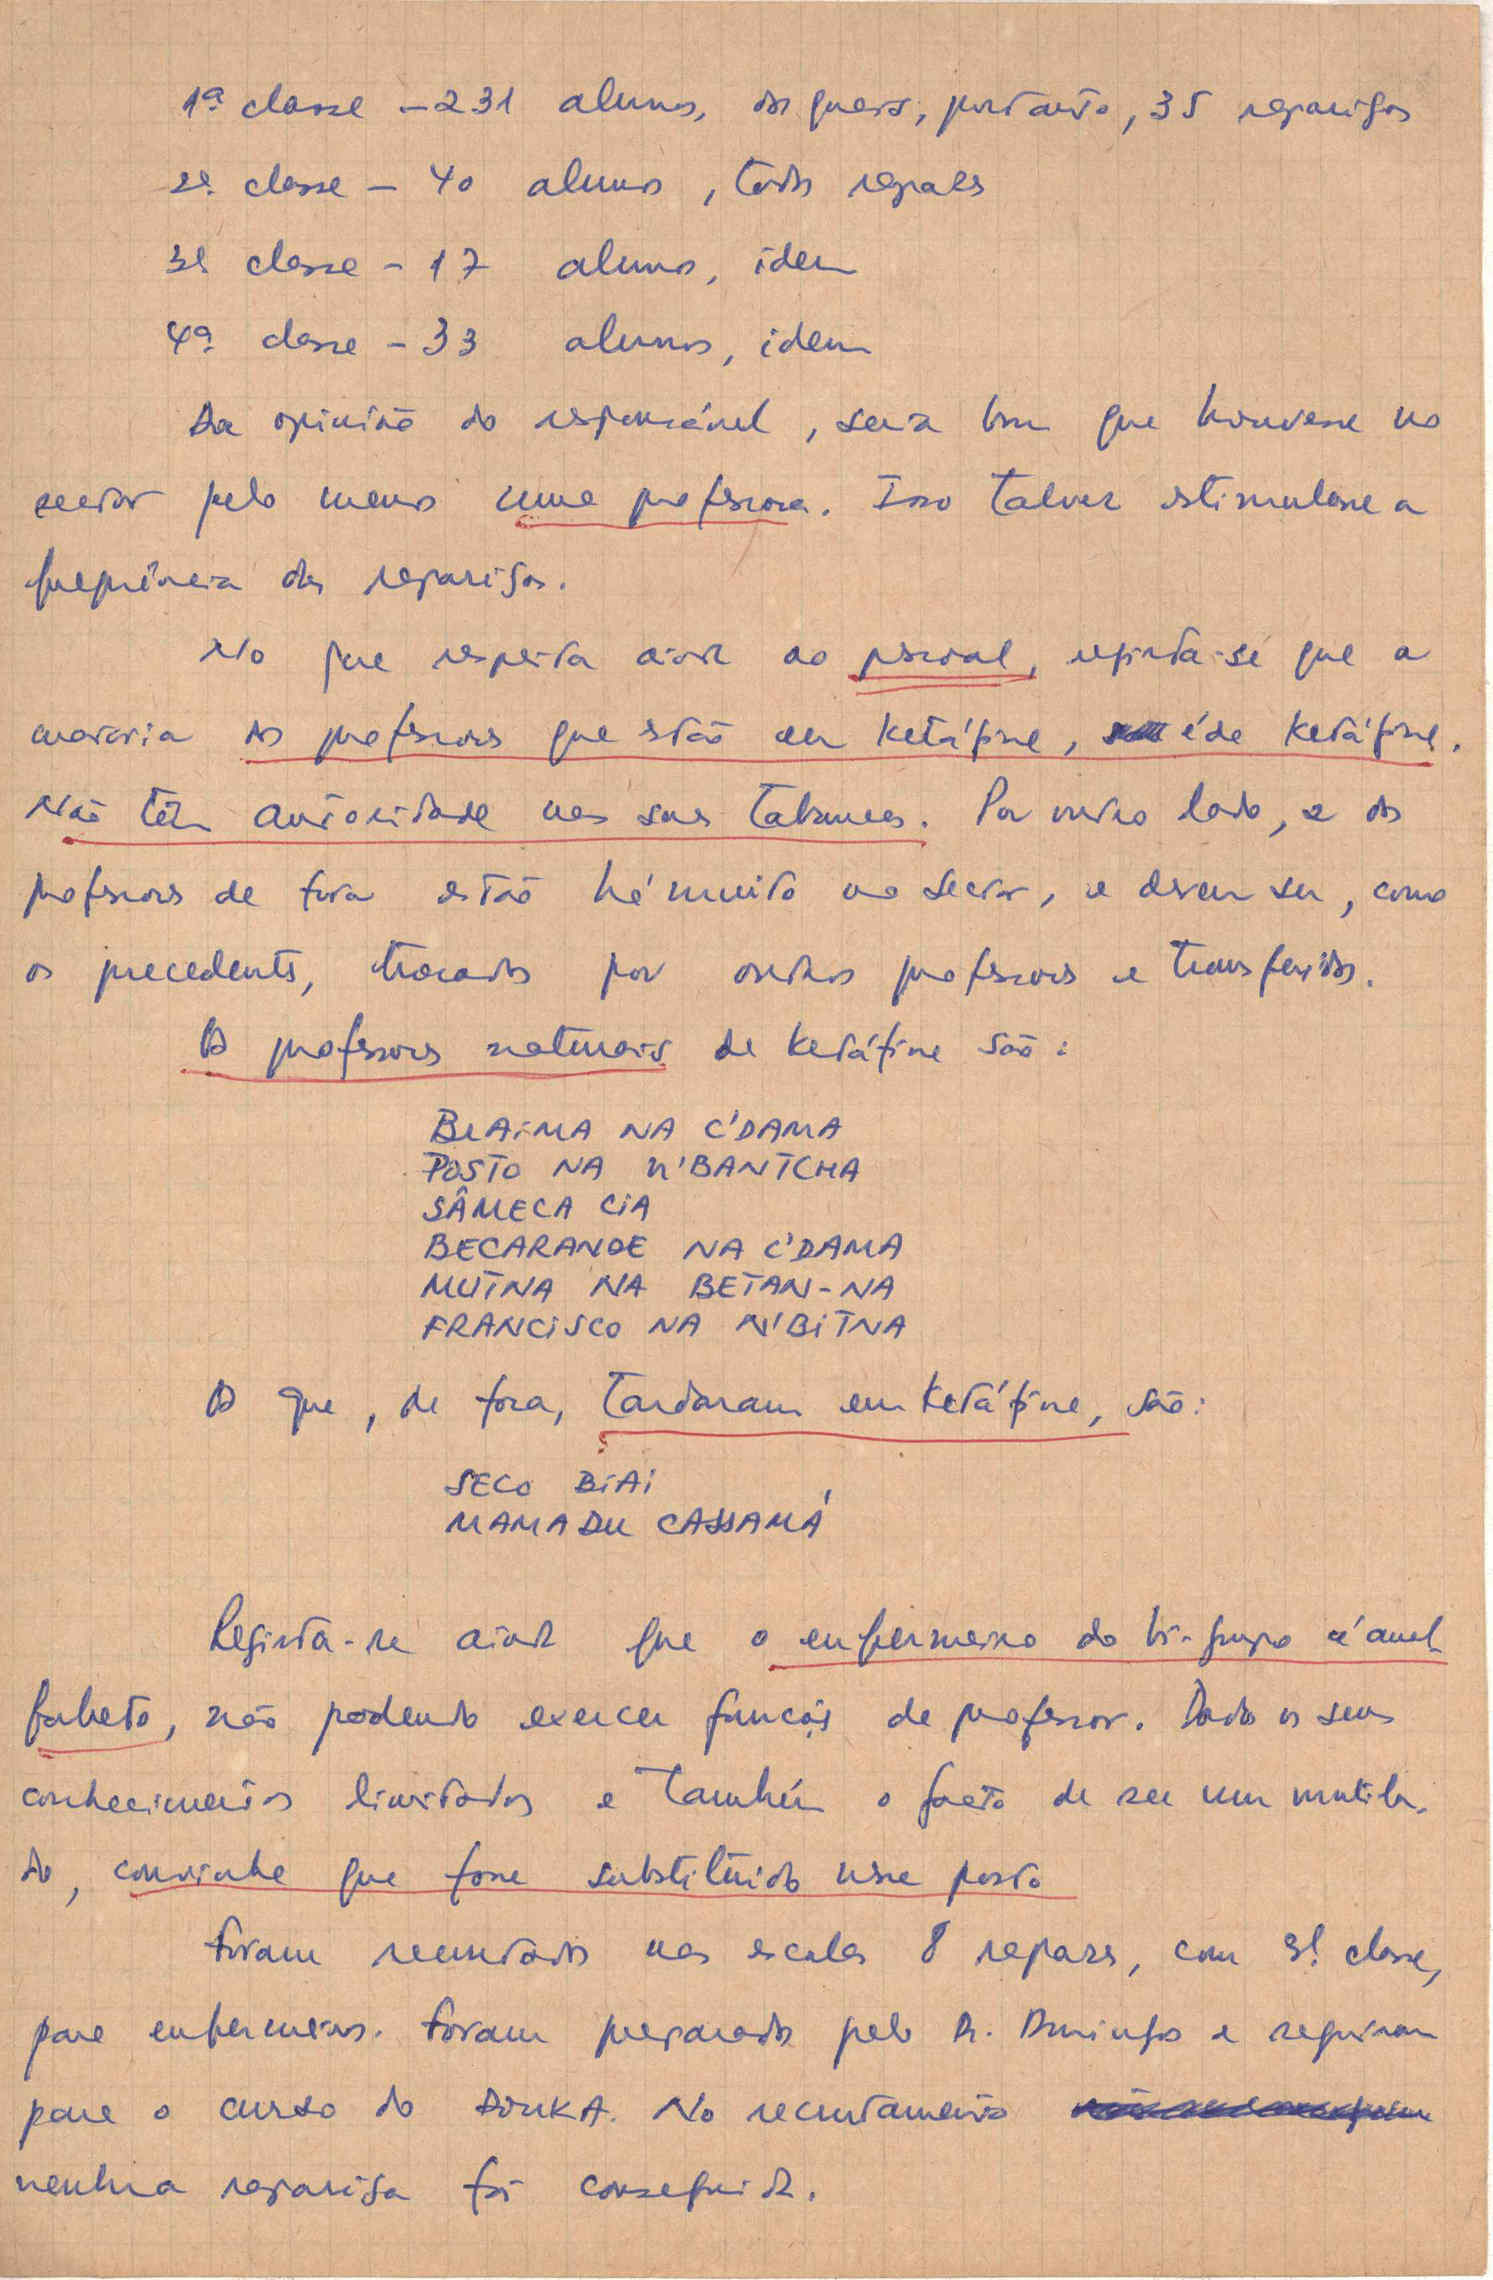 1ª classe – 231 alunos, dos quais, portanto, 35 raparigas
2ª classe – 40 alunos, todos rapazes
3ª classe – 17 alunos, idem
4ª classe – 33 alunos, idem
Da opinião do responsável, seria bom que houvesse no
sector pelo menos uma professora. Isso talvez estimulasse a
frequência das raparigas.
No que respeita ainda ao pessoal, regista-se que a
maioria dos professores que estão em Ketáfine, é de Ketáfine.
Não têm autoridade nas suas tabancas. Por outro lado, os
professores de fora estão há muito no sector, e devem ser, como
os precedentes, trocados por outros professores e transferidos.
Os professores naturais de Ketáfine são:
BLAIMA NA C'DAMA
POSTO NA N'BANTCHA
SÂMECA CIA
BECARANDE NA C'DAMA
MUTNA NA BETAN-NA
FRANCISCO NA N'BITNA
Os que, de fora, tardaram em Ketáfine, são:
SECO BIAI
MAMADU CASSAMÁ
Regista-se ainda que o enfermeiro do bi-grupo é anal
fabeto, não podendo exercer funções de professor. Dado os seus
conhecimentos limitados e também o facto de ser um mutila-
do, convinha que fosse substituído nesse posto
Foram recrutados nas escolas 8 rapazes, com 3ª classe,
para enfermeiros. Foram preparados pelo Dr. Domingos e seguiram
para o curso do DONKA. No recrutamento
nenhuma rapariga foi conseguida.